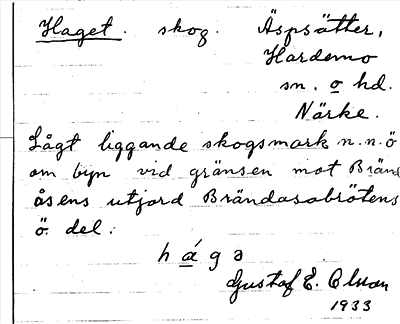 Haget. skog. Äspsätter,
Hardemo
sn. o hd.
Närke.
Lågt liggande skogsmark n.n.ö
om byn vid gränsen mot Bränd
åsens utjord Brändåsabrötens
ö. del.
h á g ə
Gustaf E. Olson
1933